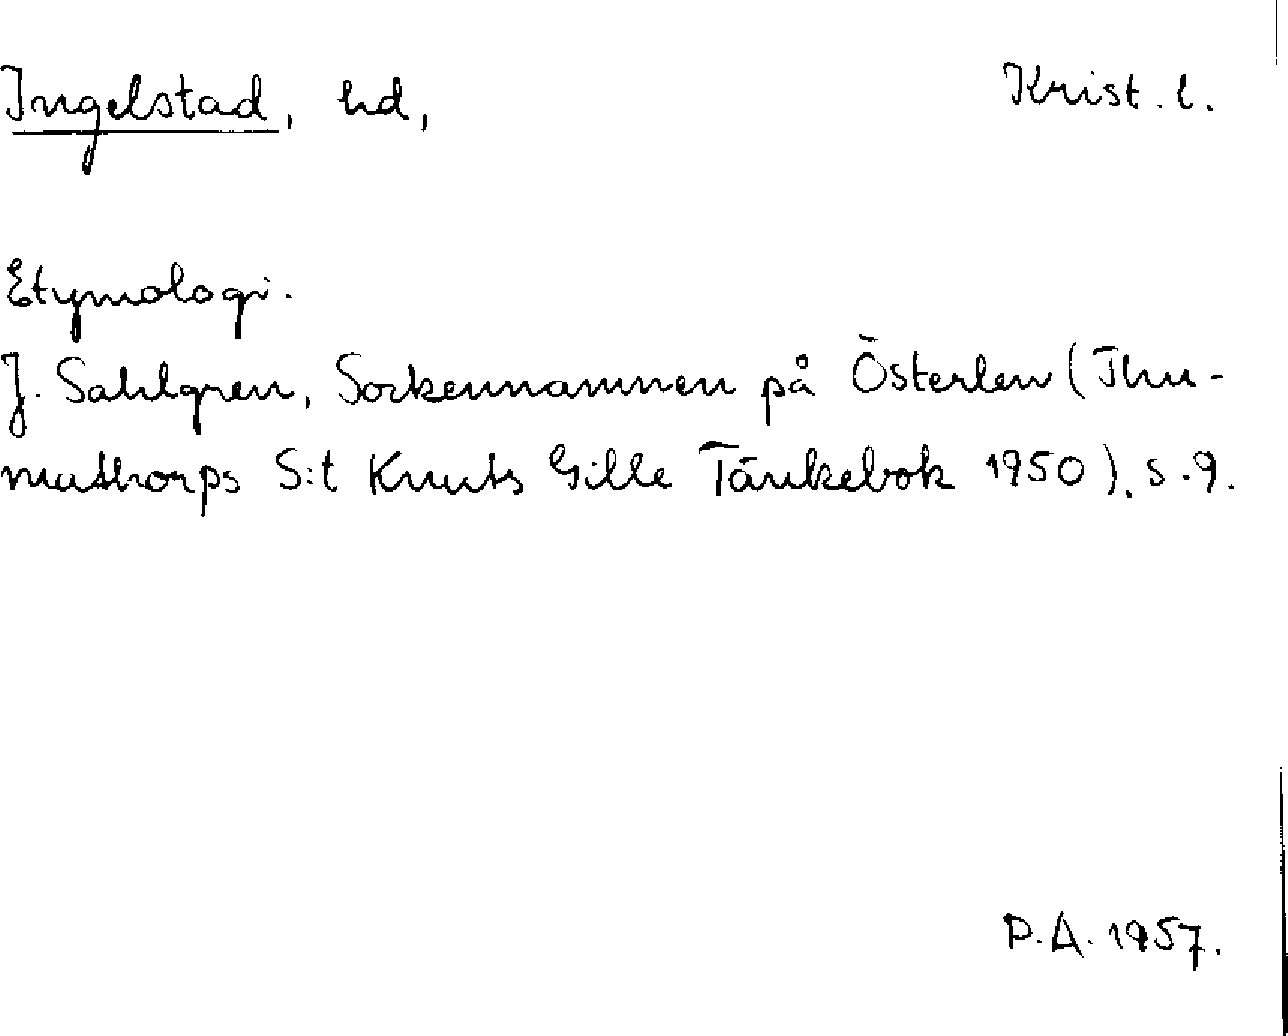 Ingelstad, hd, Krist. l.
Etymologi.
J. Sahlgren, Sockennamnen på Österlen (Thu-
mathorps S:t Knuts Gille Tänkebok 1950), s. 9.
P.A. 1957.